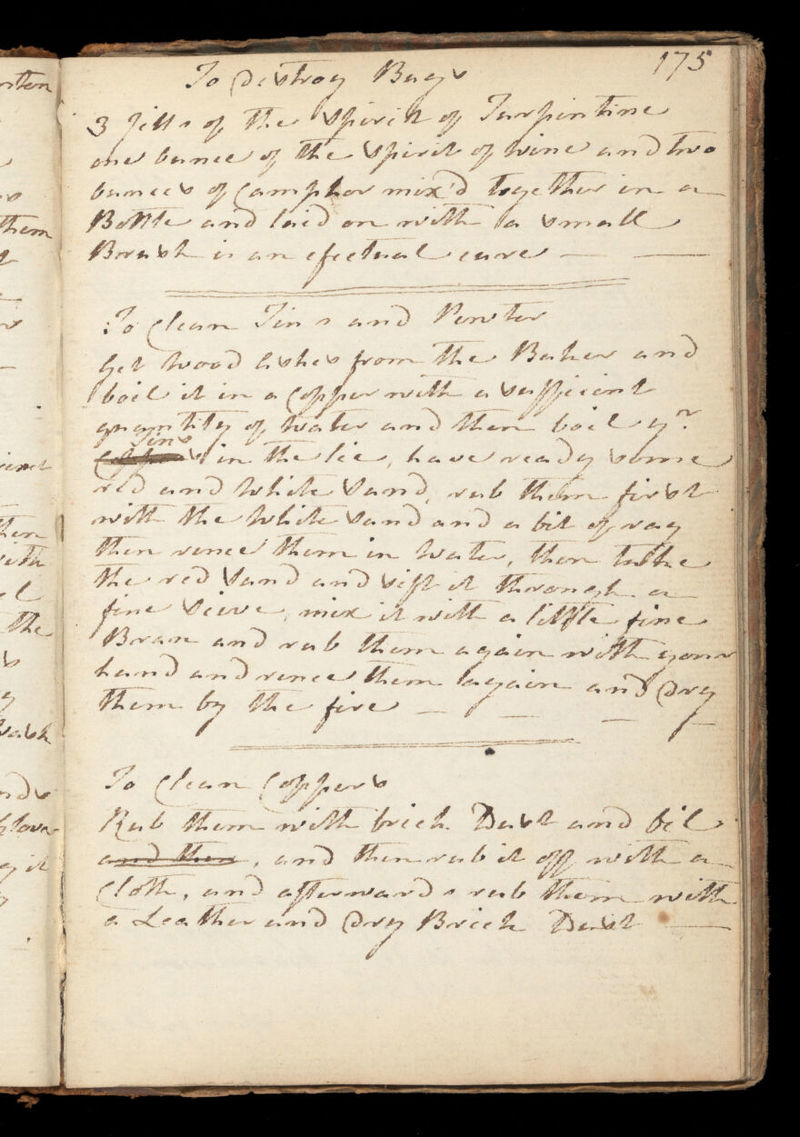 175
To Destroy Bugs
3 Jills of the Spirit of Turpintine
one ounce of the Spirit of wine and two
ounces of Camphor mix'd together in a
Bottle and laid on with a small
Brush is an efectual cure
To Clean Tins and Pewter
Get wood ashes from the Baker and
boil it in a Copper with a sufficient
quantity of water and then boil yr.
Tins
in the lie, have ready some
red and white Sand, rub them first
with the white Sand and a bit of rag
then rence them in water, then take
the red Sand and sift it through a
fine Seive, mix it with a little fine
Bran and rub them again with your
hand and rence them again and Dry
them by the fire
To Clean Coppers
Rub them with brick Dust and oil
and then, and then rub it off with a
Cloth, and afterwards rub them with
a Leather and Dry Brick Dust
them
the